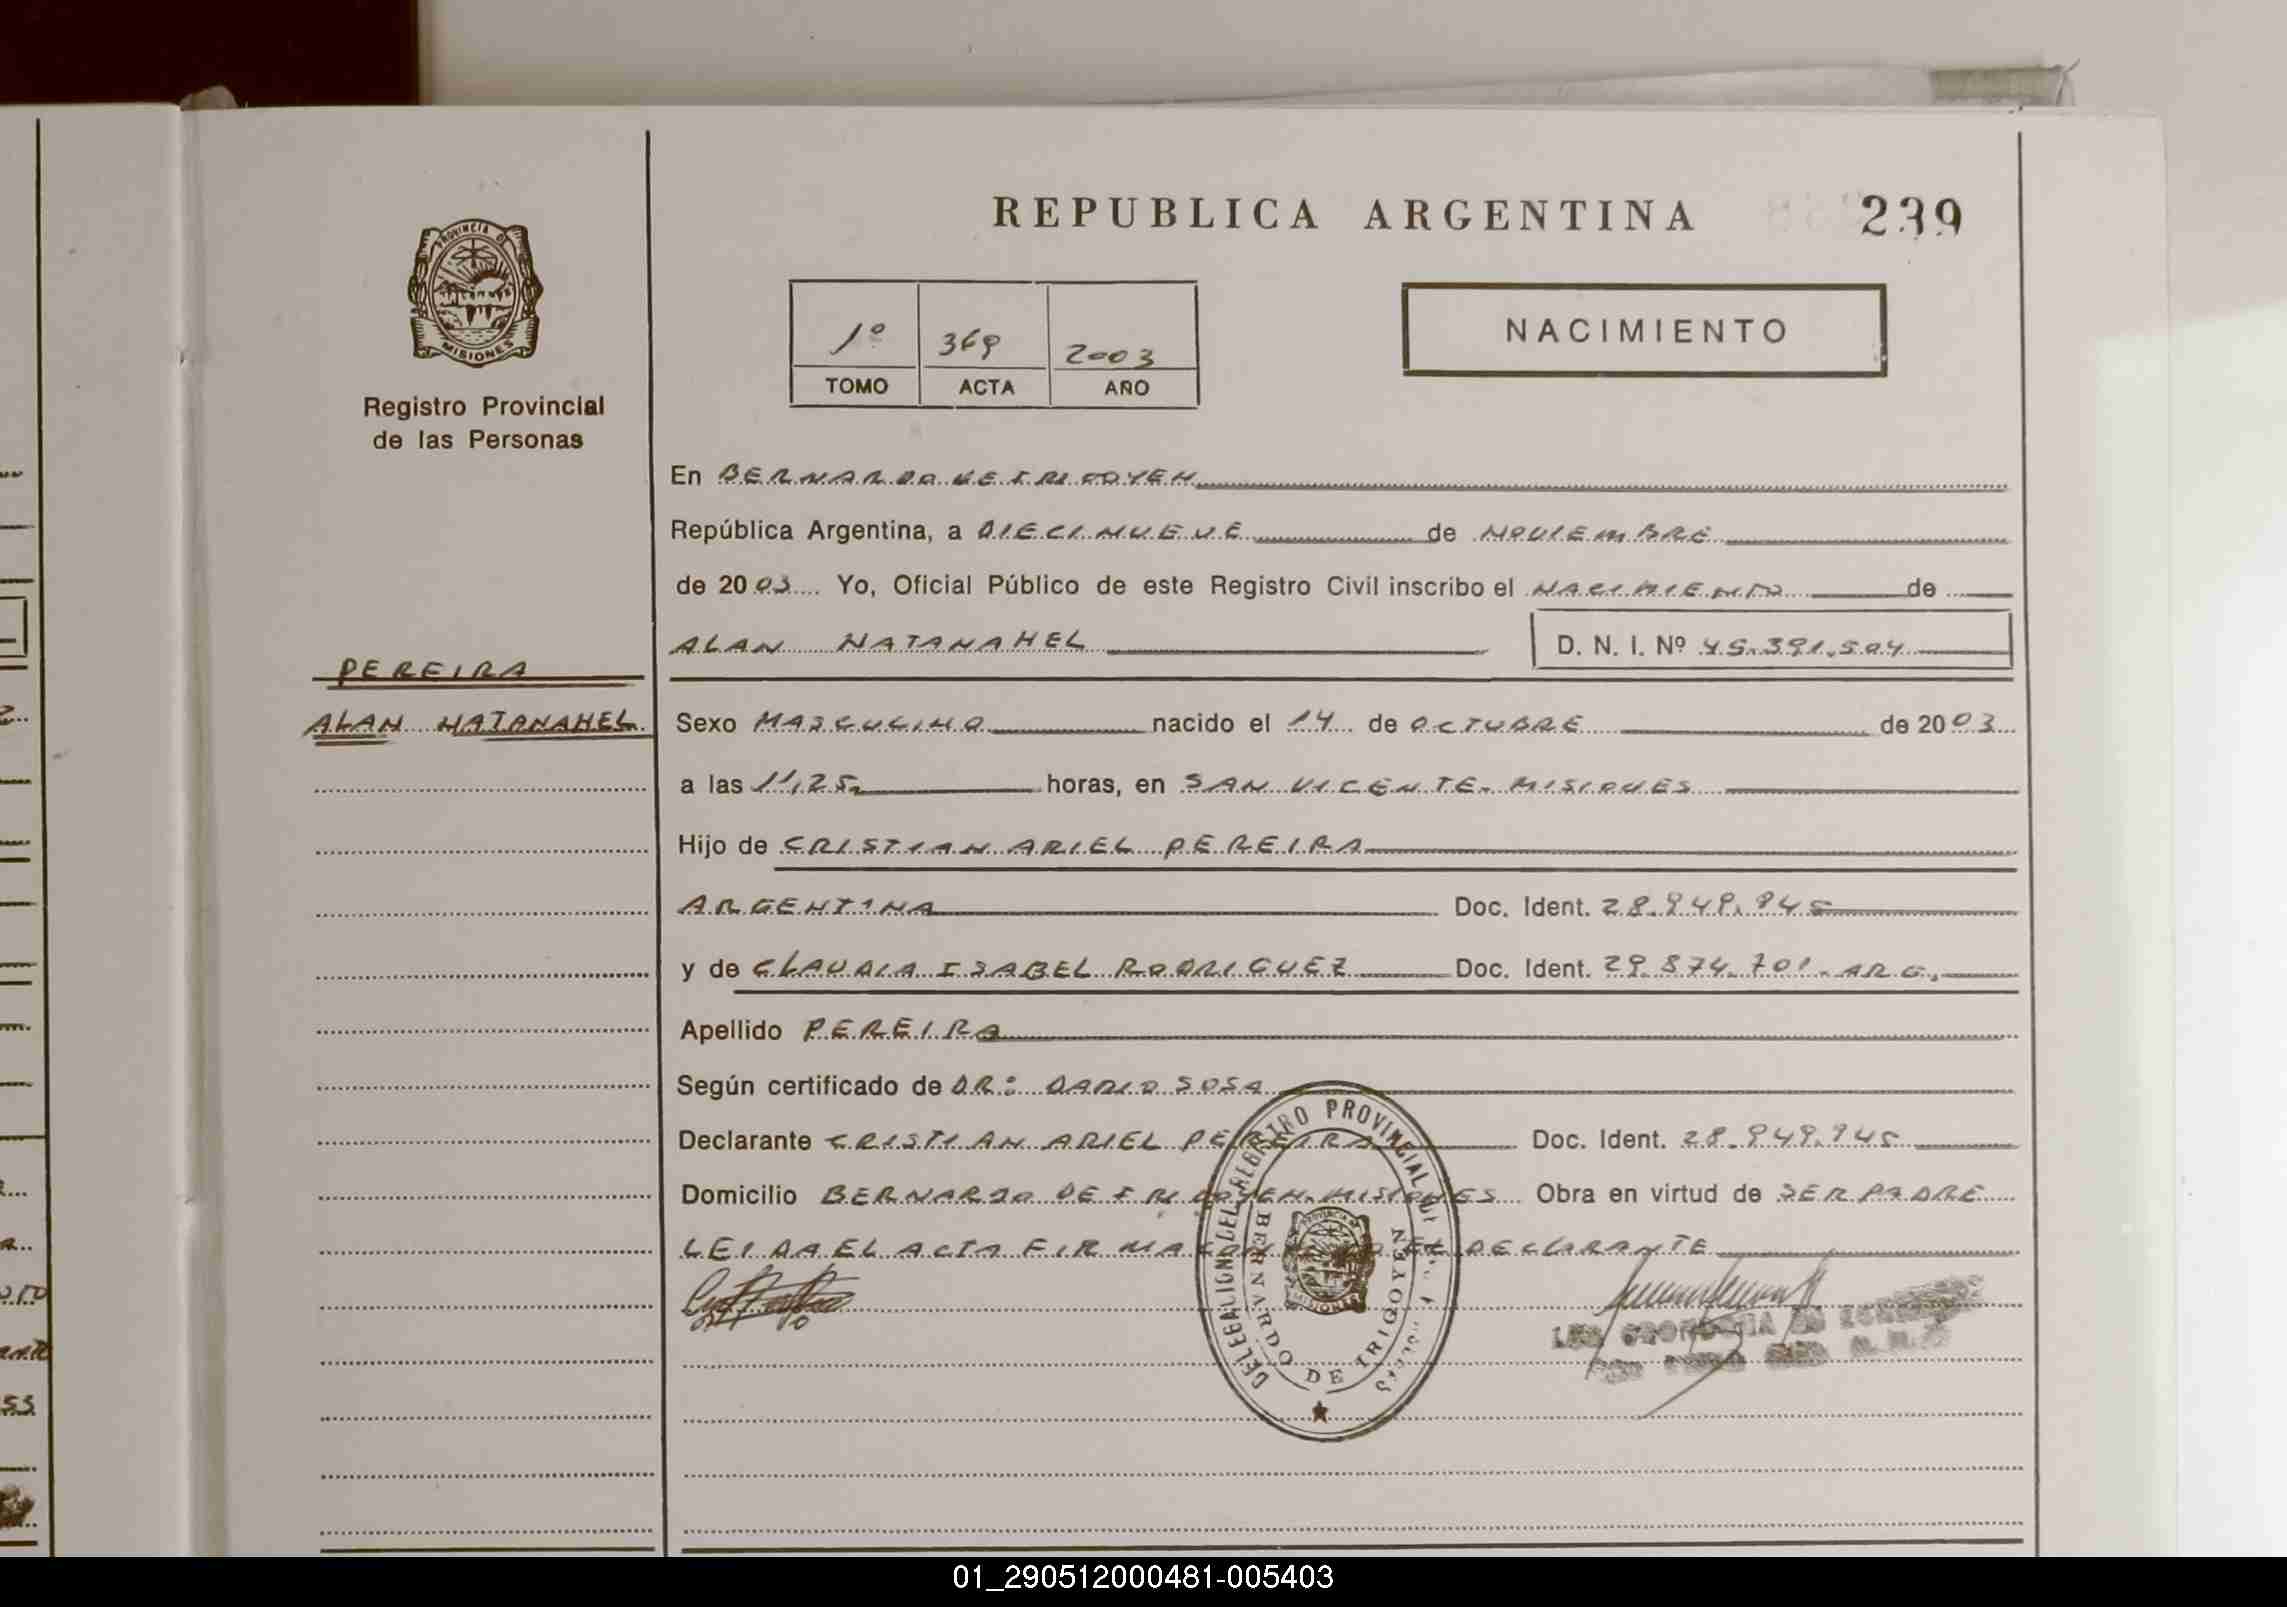 REPUBLICA ARGENTINA
239
PROVINCIA DE
MISIONES
Registro Provincial
de las Personas
1º 369 2003
TOMO ACTA AÑO
NACIMIENTO
En BERNARDO DE IRIGOYEN
República Argentina, a DIECINUEVE de NOVIEMBRE
de 2003 Yo, Oficial Público de este Registro Civil inscribo el NACIMIENTO de
ALAN NATANAHEL D. N. I. Nº 45.391.504
PEREIRA
ALAN NATANAHEL
Sexo MASCULINO nacido el 14 de OCTUBRE de 2003
a las 11,25 horas, en SAN VICENTE. MISIONES
Hijo de CRISTIAN ARIEL PEREIRA
ARGENTINA Doc. Ident. 28.949.945
y de CLAUDIA ISABEL RODRIGUEZ Doc. Ident. 29.874.701. ARG.
Apellido PEREIRA
Según certificado de DR: DARIO SOSA
Declarante CRISTIAN ARIEL PEREIRA Doc. Ident. 28.949.945
Domicilio BERNARDO DE IRIGOYEN. MISIONES Obra en virtud de SER PADRE
LEIDA EL ACTA FIRMA EL DECLARANTE
DELEGACION DEL REGISTRO PROVINCIAL
BERNARDO DE IRIGOYEN
PROVINCIA DE
MISIONES
01_290512000481-005403